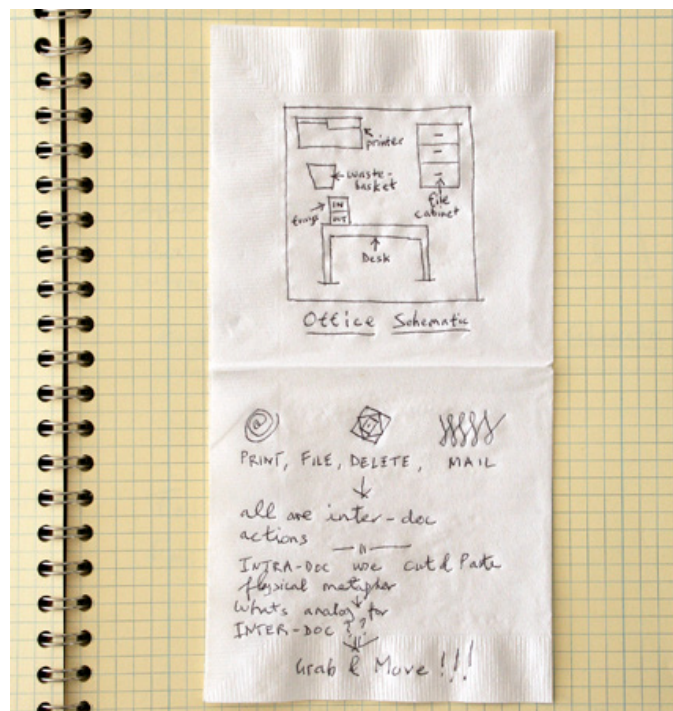 printer
waste-
basket
file
cabinet
trays
IN
OUT
Desk
Office Schematic
@
PRINT, FILE, DELETE, MAIL
all are inter-doc
actions
INTRA-DOC use cut & Paste
physical metaphor
What's analog for
INTER-DOC ??
Grab & Move !!!